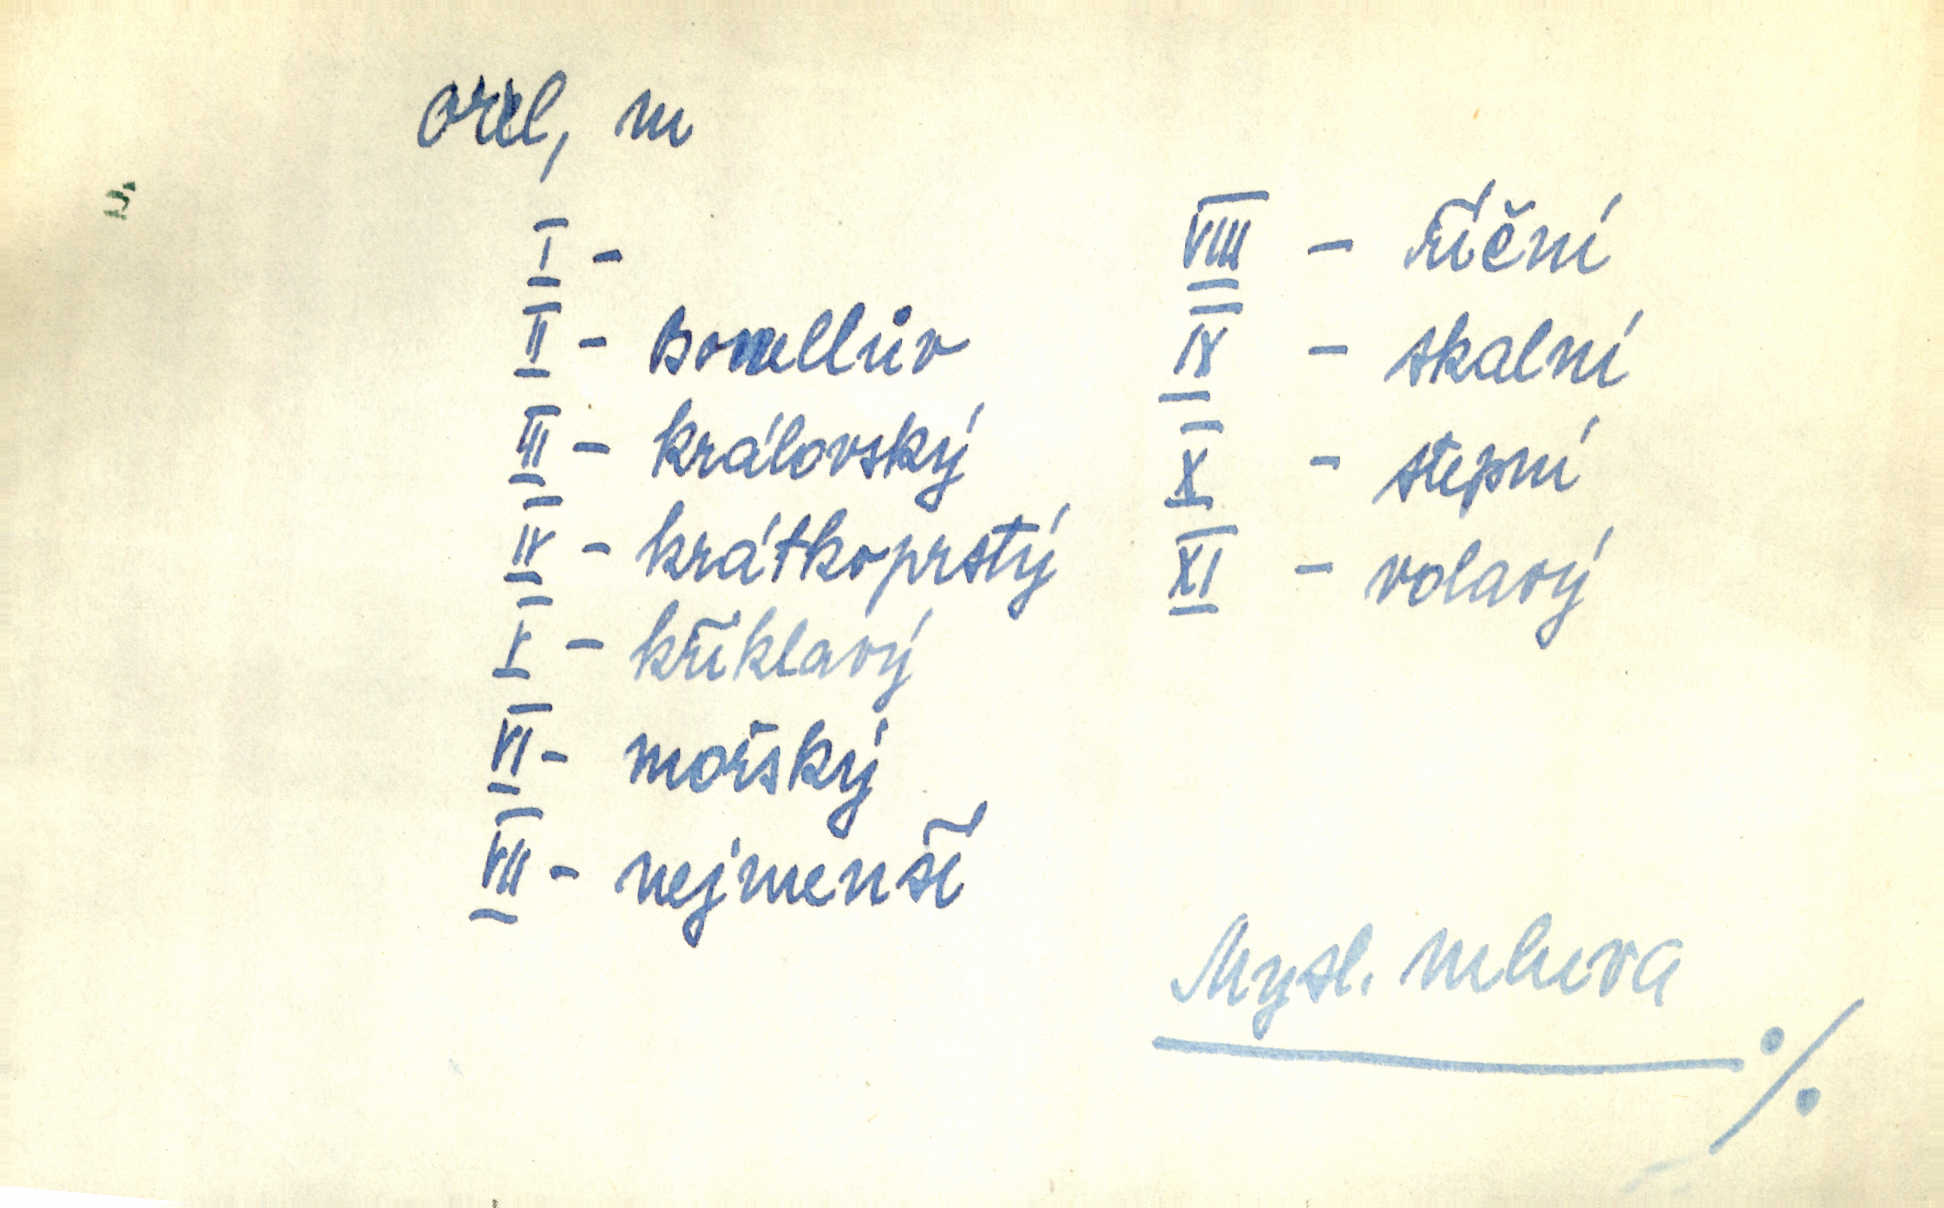 orel, m
I -
II - Bonellův
III - královský
IV - krátkoprstý
V - křiklavý
VI - mořský
VII - nejmenší
VIII - říční
IX - skalní
X - stepní
XI - volavý
Mysl. mluva
./.